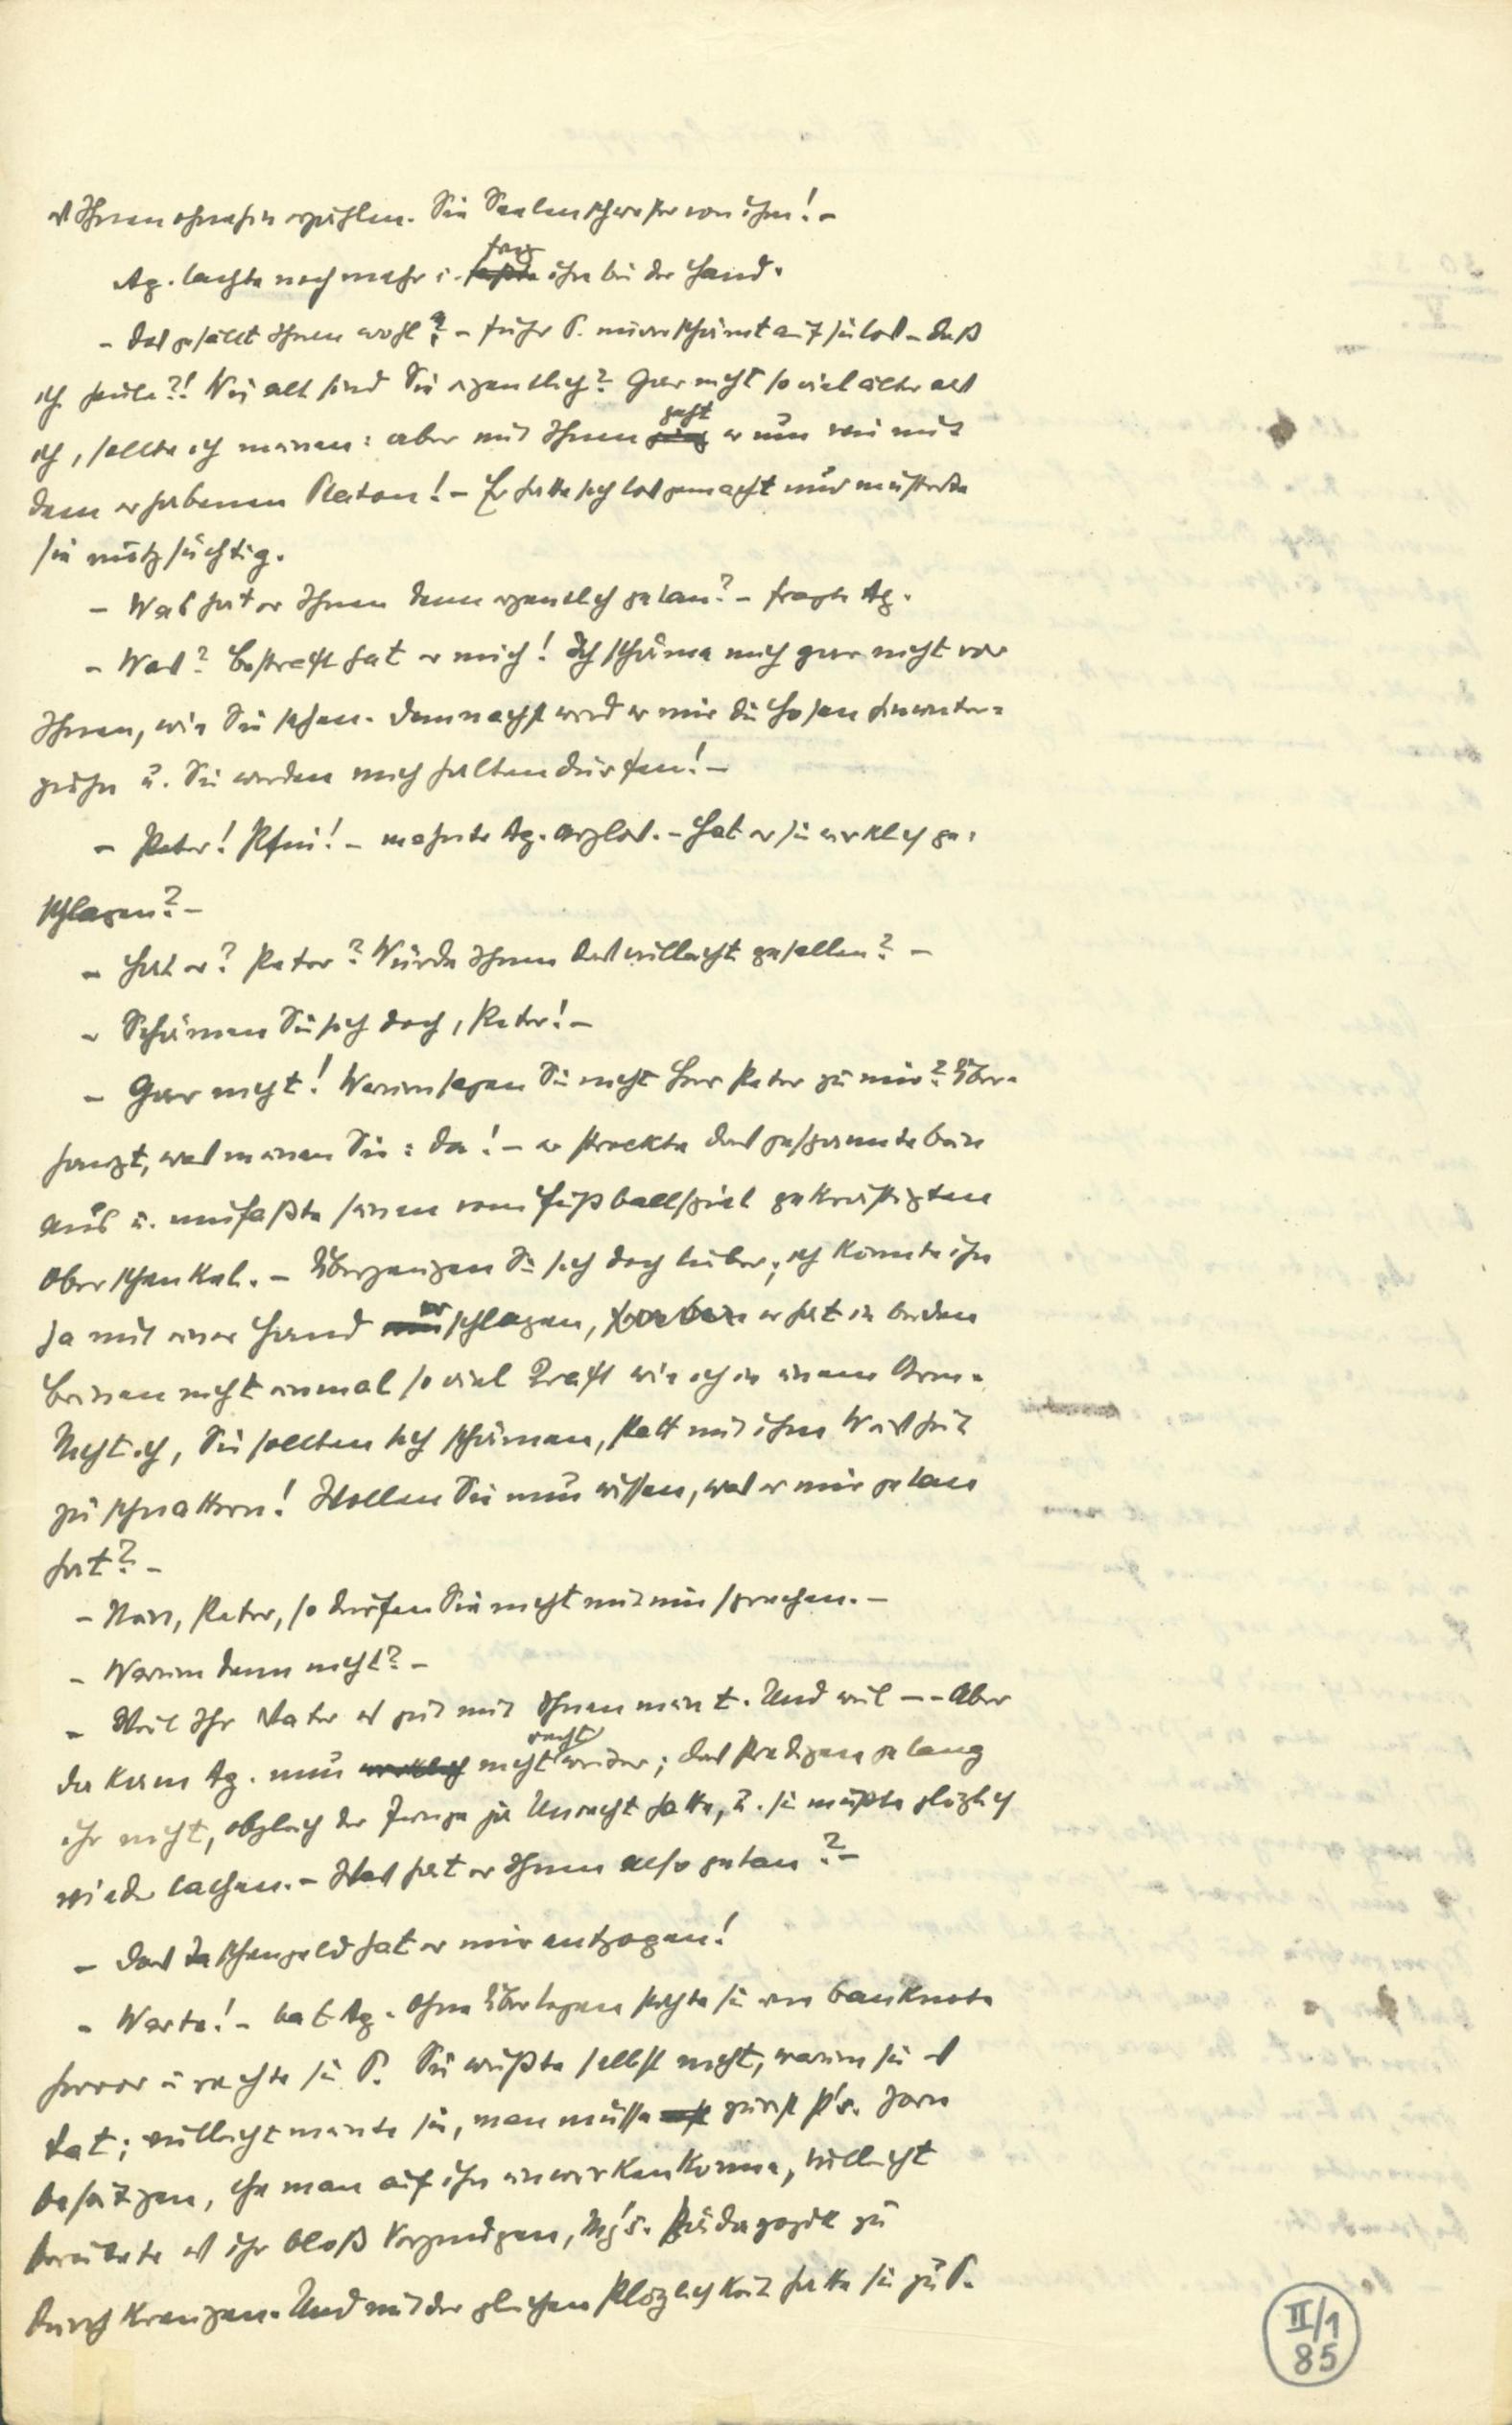 es Ihnen ohnehin erzählen. Sie Seelenschwester von ihm! –
Ag. lachte noch mehr u. faßte fing ihn bei der Hand.
– Das gefällt Ihnen wohl? – fuhr P. unverschämt auf sie los – daß
ich heule?! Wie alt sind Sie eigentlich? Gar nicht so viel älter als
ich, sollte ich meinen: aber mit Ihnen ging geht er um wie mit
dem erhabenen Platon! – Er hatte sich losgemacht und musterte
sie
– Was hat er Ihnen denn eigentlich getan? – fragte Ag.
– Was? Bestraft hat er mich! Ich schäme mich gar nicht vor
Ihnen, wie Sie sehen. Demnächst wird er mir die Hosen hinunter-
ziehn u. Sie werden mich halten dürfen! –
– Peter! Pfui! – mahnte Ag. arglos. – Hat er Sie wirklich ge-
schlagen? –
– Hat er? Peter? Würde Ihnen das vielleicht gefallen? –
– Schämen Sie sich doch, Peter! –
– Gar nicht! Warum sagen Sie nicht Herr Peter zu mir? Über-
haupt, was meinen Sie: da! – er streckte das gespannte Bein
aus u. umfaßte seinen vom Fußballspiel gekräftigten
Oberschenkel. – Überzeugen Sie sich doch lieber; ich könnte ihn
ja mit einer Hand erschlagen, er hat in beiden
Beinen nicht einmal so viel Kraft wie ich in einem Arm.
Nicht ich, Sie sollten sich schämen, statt mit ihm Weisheit
zu schnattern! Wollen Sie nun wissen, was er mir getan
hat? –
– Nein, Peter, so dürfen Sie nicht mit mir sprechen. –
– Warum denn nicht? –
– Weil Ihr Vater es gut mit Ihnen meint. Und weil – – Aber
da kam Ag. nun wirklich nicht recht weiter; das Predigen gelang
ihr nicht, obgleich der Junge ja Unrecht hatte, u. sie mußte plözlich
wieder lachen. – Was hat er Ihnen also getan? –
– Das Taschengeld hat er mir entzogen!
– Warte! – bat Ag. Ohne Überlegen suchte sie eine Banknote
hervor u reichte sie P. Sie wußte selbst nicht, warum sie es
tat; vielleicht meinte sie, man müsse zuerst P's. Zorn
beseitigen, ehe man auf ihn einwirken könne, vielleicht
bereitete es ihr bloß Vergnügen, Pädagogik zu
durchkreuzen. Und mit der gleichen Plözlichkeit hatte sie zu P.
II/1
85